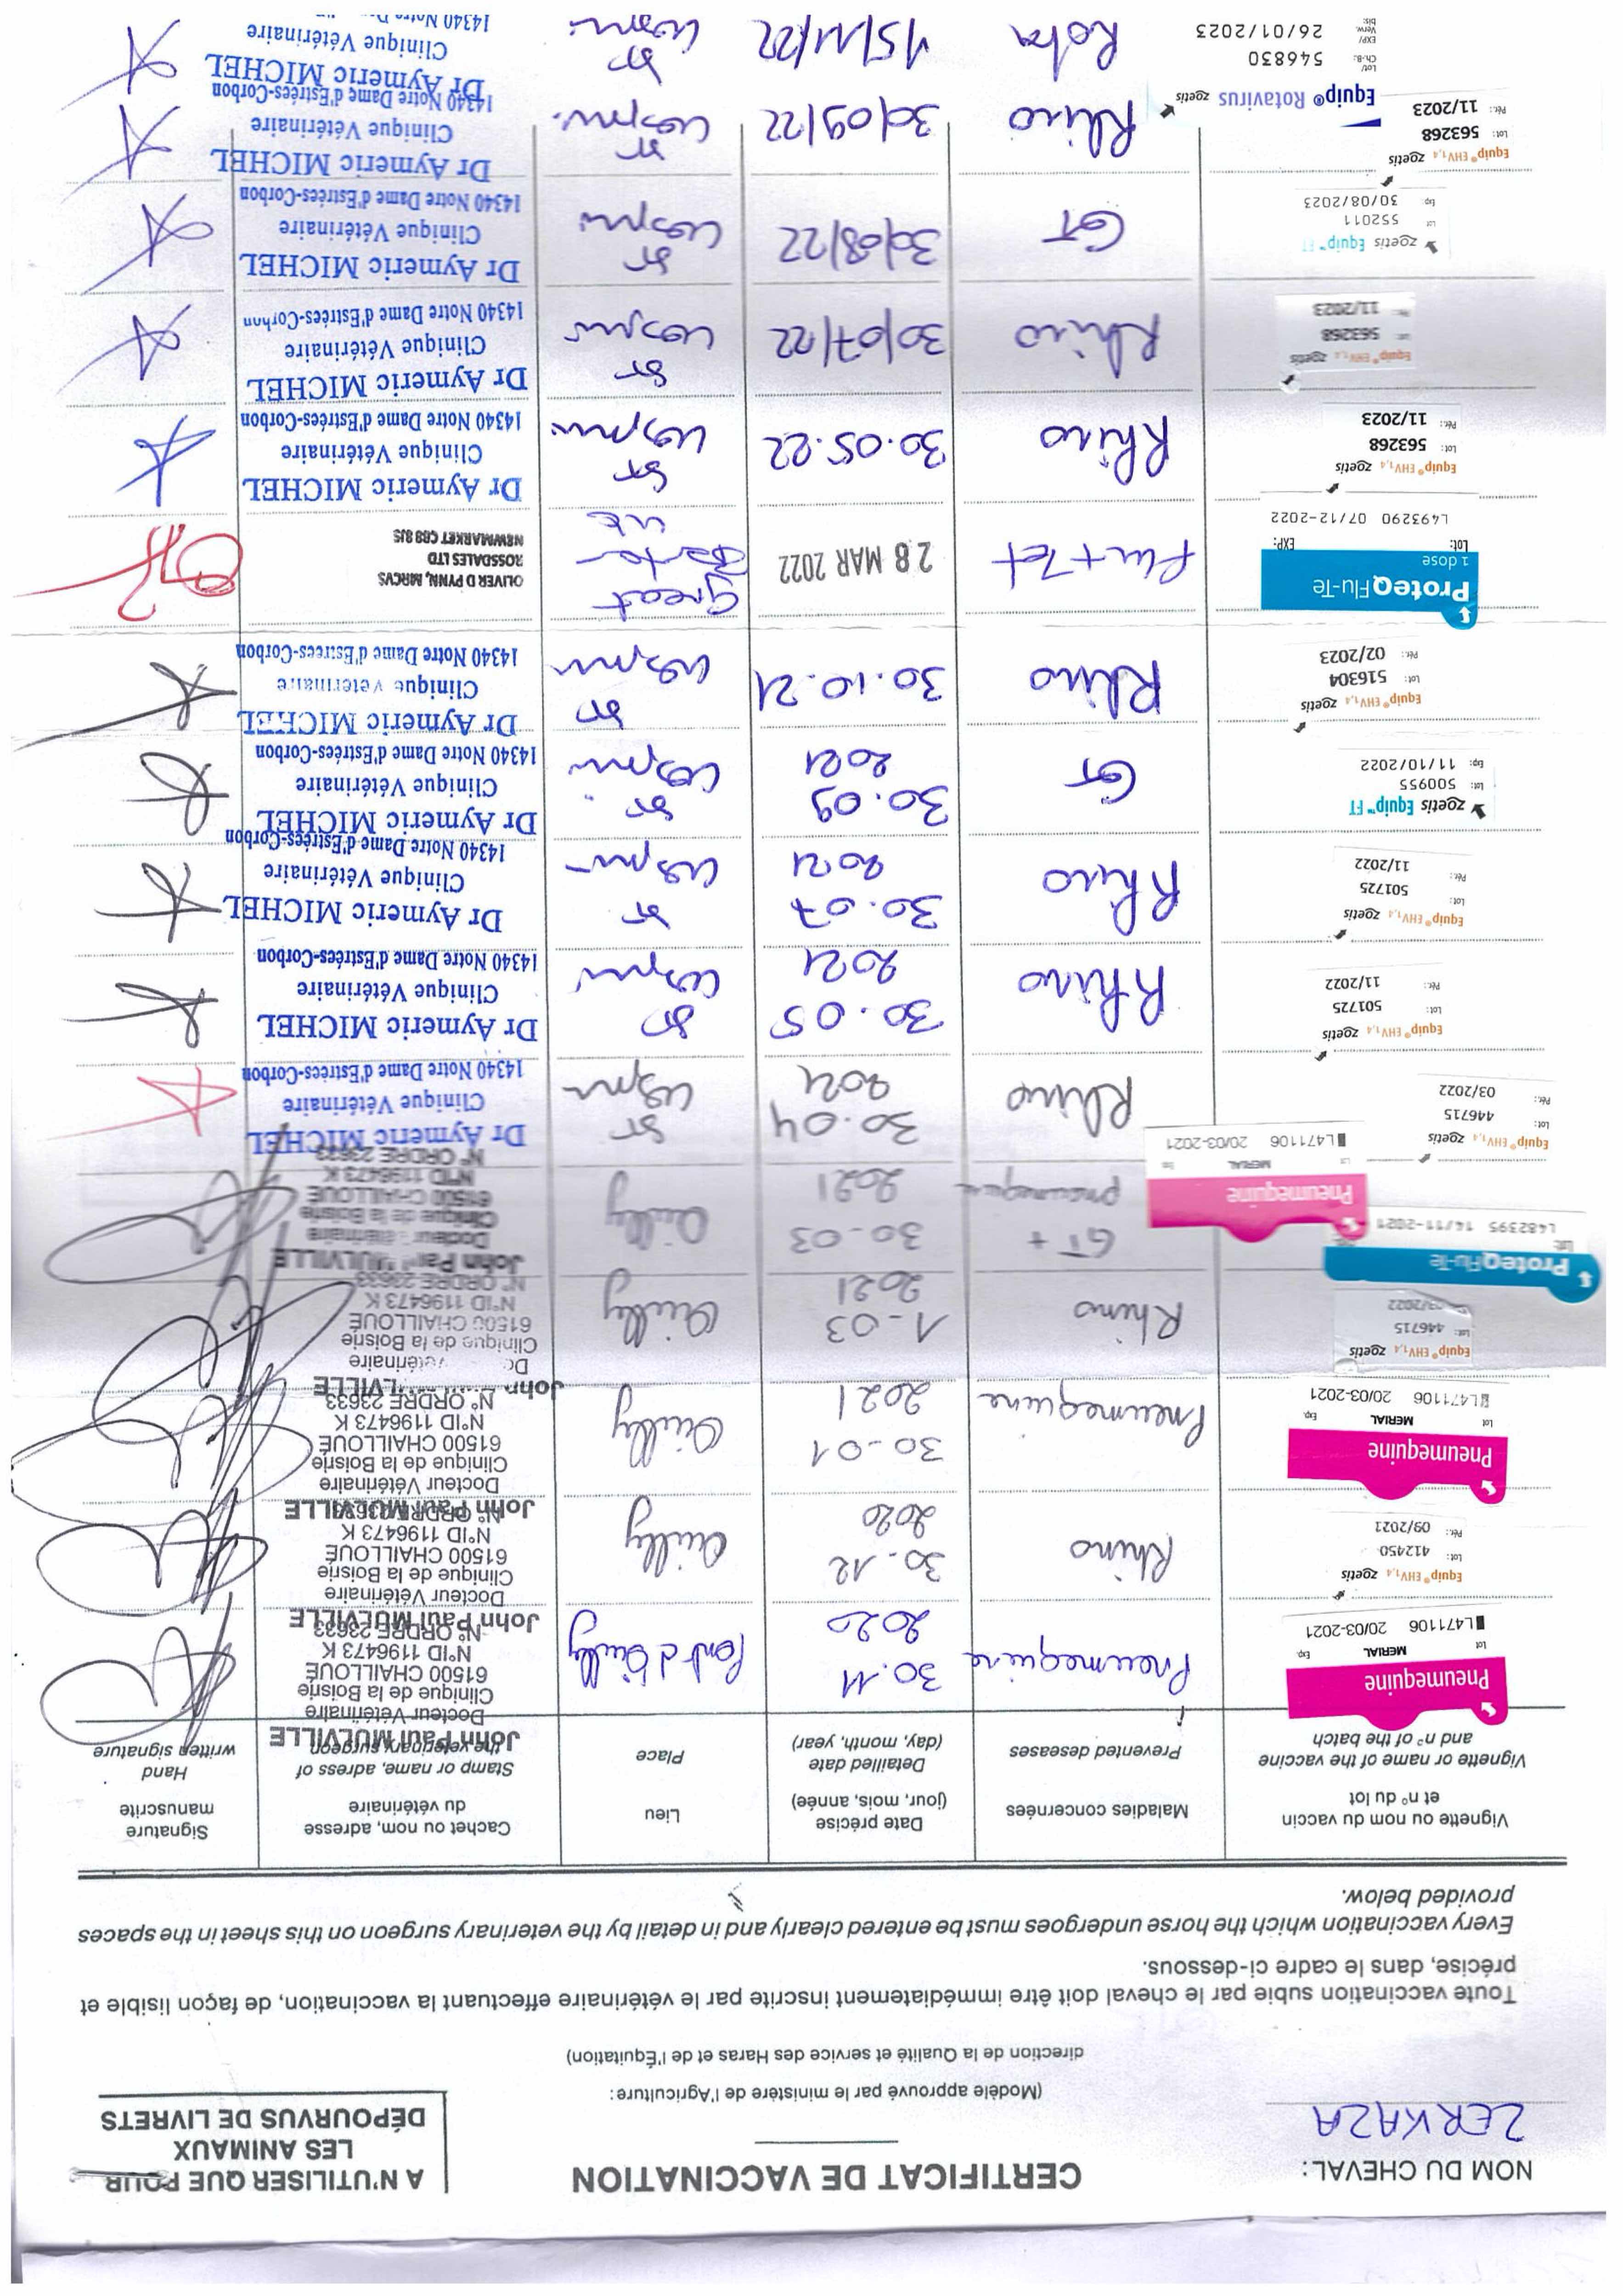 NOM DU CHEVAL:
ZERKAZA
CERTIFICAT DE VACCINATION
(Modèle approuvé par le ministère de l'Agriculture:
direction de la Qualité et service des Haras et de l'Équitation)
A N'UTILISER QUE POUR
LES ANIMAUX
DÉPOURVUS DE LIVRETS
Toute vaccination subie par le cheval doit être immédiatement inscrite par le vétérinaire effectuant la vaccination, de façon lisible et
précise, dans le cadre ci-dessous.
Every vaccination which the horse undergoes must be entered clearly and in detail by the veterinary surgeon on this sheet in the spaces
provided below.
Vignette ou nom du vaccin
et n° du lot
Vignette or name of the vaccine
and n° of the batch
Maladies concernées
Prevented deseases
Date précise
(jour, mois, année)
Detailled date
(day, month, year)
Lieu
Place
Cachet ou nom, adresse
du vétérinaire
Stamp or name, adress of
the veterinary surgeon
Signature
manuscrite
Hand
written signature
Pneumequine
Lot MERIAL Exp
L471106 20/03-2021
Pneumequine
30.11
2020
Pont d'Ouilly
John Paul MULVILLE
Docteur Vétérinaire
Clinique de la Boisrie
61500 CHAILLOUÉ
N°ID 1196473 K
N° ORDRE 23633
Equip® EHV1,4 zoetis
Lot: 412450
Pér.: 09/2021
Rhino
30.12
2020
Ouilly
John Paul MULVILLE
Docteur Vétérinaire
Clinique de la Boisrie
61500 CHAILLOUÉ
N°ID 1196473 K
N° ORDRE 23633
Pneumequine
Lot MERIAL Exp
L471106 20/03-2021
Pneumequine
30-01
2021
Ouilly
John Paul MULVILLE
Docteur Vétérinaire
Clinique de la Boisrie
61500 CHAILLOUÉ
N°ID 1196473 K
N° ORDRE 23633
Equip® EHV1,4 zoetis
Lot: 446715
03/2022
Rhino
1-03
2021
Ouilly
John
vétérinaire
Clinique de la Boisrie
61500 CHAILLOUÉ
N°ID 1196473 K
N° ORDRE 23633
ProteqFlu-Te
Lot:
L482395 14/11-2021
Pneumequine
Lot MERIAL
L471106 20/03-2021
GT +
pneumequine
30-03
2021
Ouilly
John Paul MULVILLE
Docteur
Clinique de la Boisrie
61500 CHAILLOUÉ
N°ID 1196473 K
N° ORDRE 23633
Equip® EHV1,4 zoetis
Lot: 446715
Pér.: 03/2022
Rhino
30.04
2021
Dr Aymeric MICHEL
Clinique Vétérinaire
14340 Notre Dame d'Estrées-Corbon
Equip® EHV1,4 zoetis
Lot: 501725
Pér.: 11/2022
Rhino
30.05
2021
Dr Aymeric MICHEL
Clinique Vétérinaire
14340 Notre Dame d'Estrées-Corbon
Equip® EHV1,4 zoetis
Lot: 501725
Pér.: 11/2022
Rhino
30.07
2021
Dr Aymeric MICHEL
Clinique Vétérinaire
14340 Notre Dame d'Estrées-Corbon
zoetis Equip™ FT
Lot: 500955
Exp: 11/10/2022
GT
30.09
2021
Dr Aymeric MICHEL
Clinique Vétérinaire
14340 Notre Dame d'Estrées-Corbon
Equip® EHV1,4 zoetis
Lot: 516304
Pér.: 02/2023
Rhino
30.10.21
Dr Aymeric MICHEL
Clinique Vétérinaire
14340 Notre Dame d'Estrées-Corbon
ProteqFlu-Te
1 dose
Lot: EXP:
L493290 07/12-2022
Flu + Tet
28 MAR 2022
Great
Barton
UK
OLIVER D PYNN, MRCVS
ROSSDALES LTD
NEWMARKET CB8 8JS
Equip® EHV1,4 zoetis
Lot: 563268
Pér.: 11/2023
Rhino
30.05.22
Dr Aymeric MICHEL
Clinique Vétérinaire
14340 Notre Dame d'Estrées-Corbon
Equip® EHV1,4 zoetis
563268
11/2023
Rhino
30/07/22
Dr Aymeric MICHEL
Clinique Vétérinaire
14340 Notre Dame d'Estrées-Corbon
zoetis Equip™ FT
Lot 552011
Exp. 30/08/2023
GT
30/08/22
Dr Aymeric MICHEL
Clinique Vétérinaire
14340 Notre Dame d'Estrées-Corbon
Equip® EHV1,4 zoetis
Lot: 563268
Pér.: 11/2023
Rhino
30/09/22
Dr Aymeric MICHEL
Clinique Vétérinaire
14340 Notre Dame d'Estrées-Corbon
Equip® Rotavirus zoetis
Lot/ Ch.-B.: 546830
EXP/ Verw. bis: 26/01/2023
Rota
15/11/22
Dr Aymeric MICHEL
Clinique Vétérinaire
14340 Notre